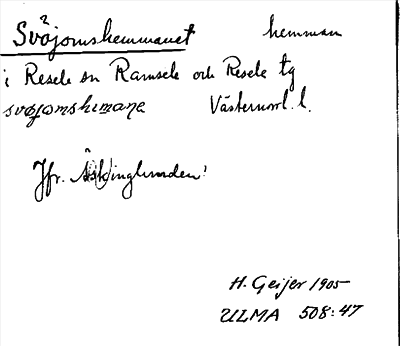 Svöjomshemmanet hemman
i Resele sn Ramsele och Resele tg
svöjomshemane Västernorrl. l.
Jfr.
H. Geijer 1905
ULMA 508:47